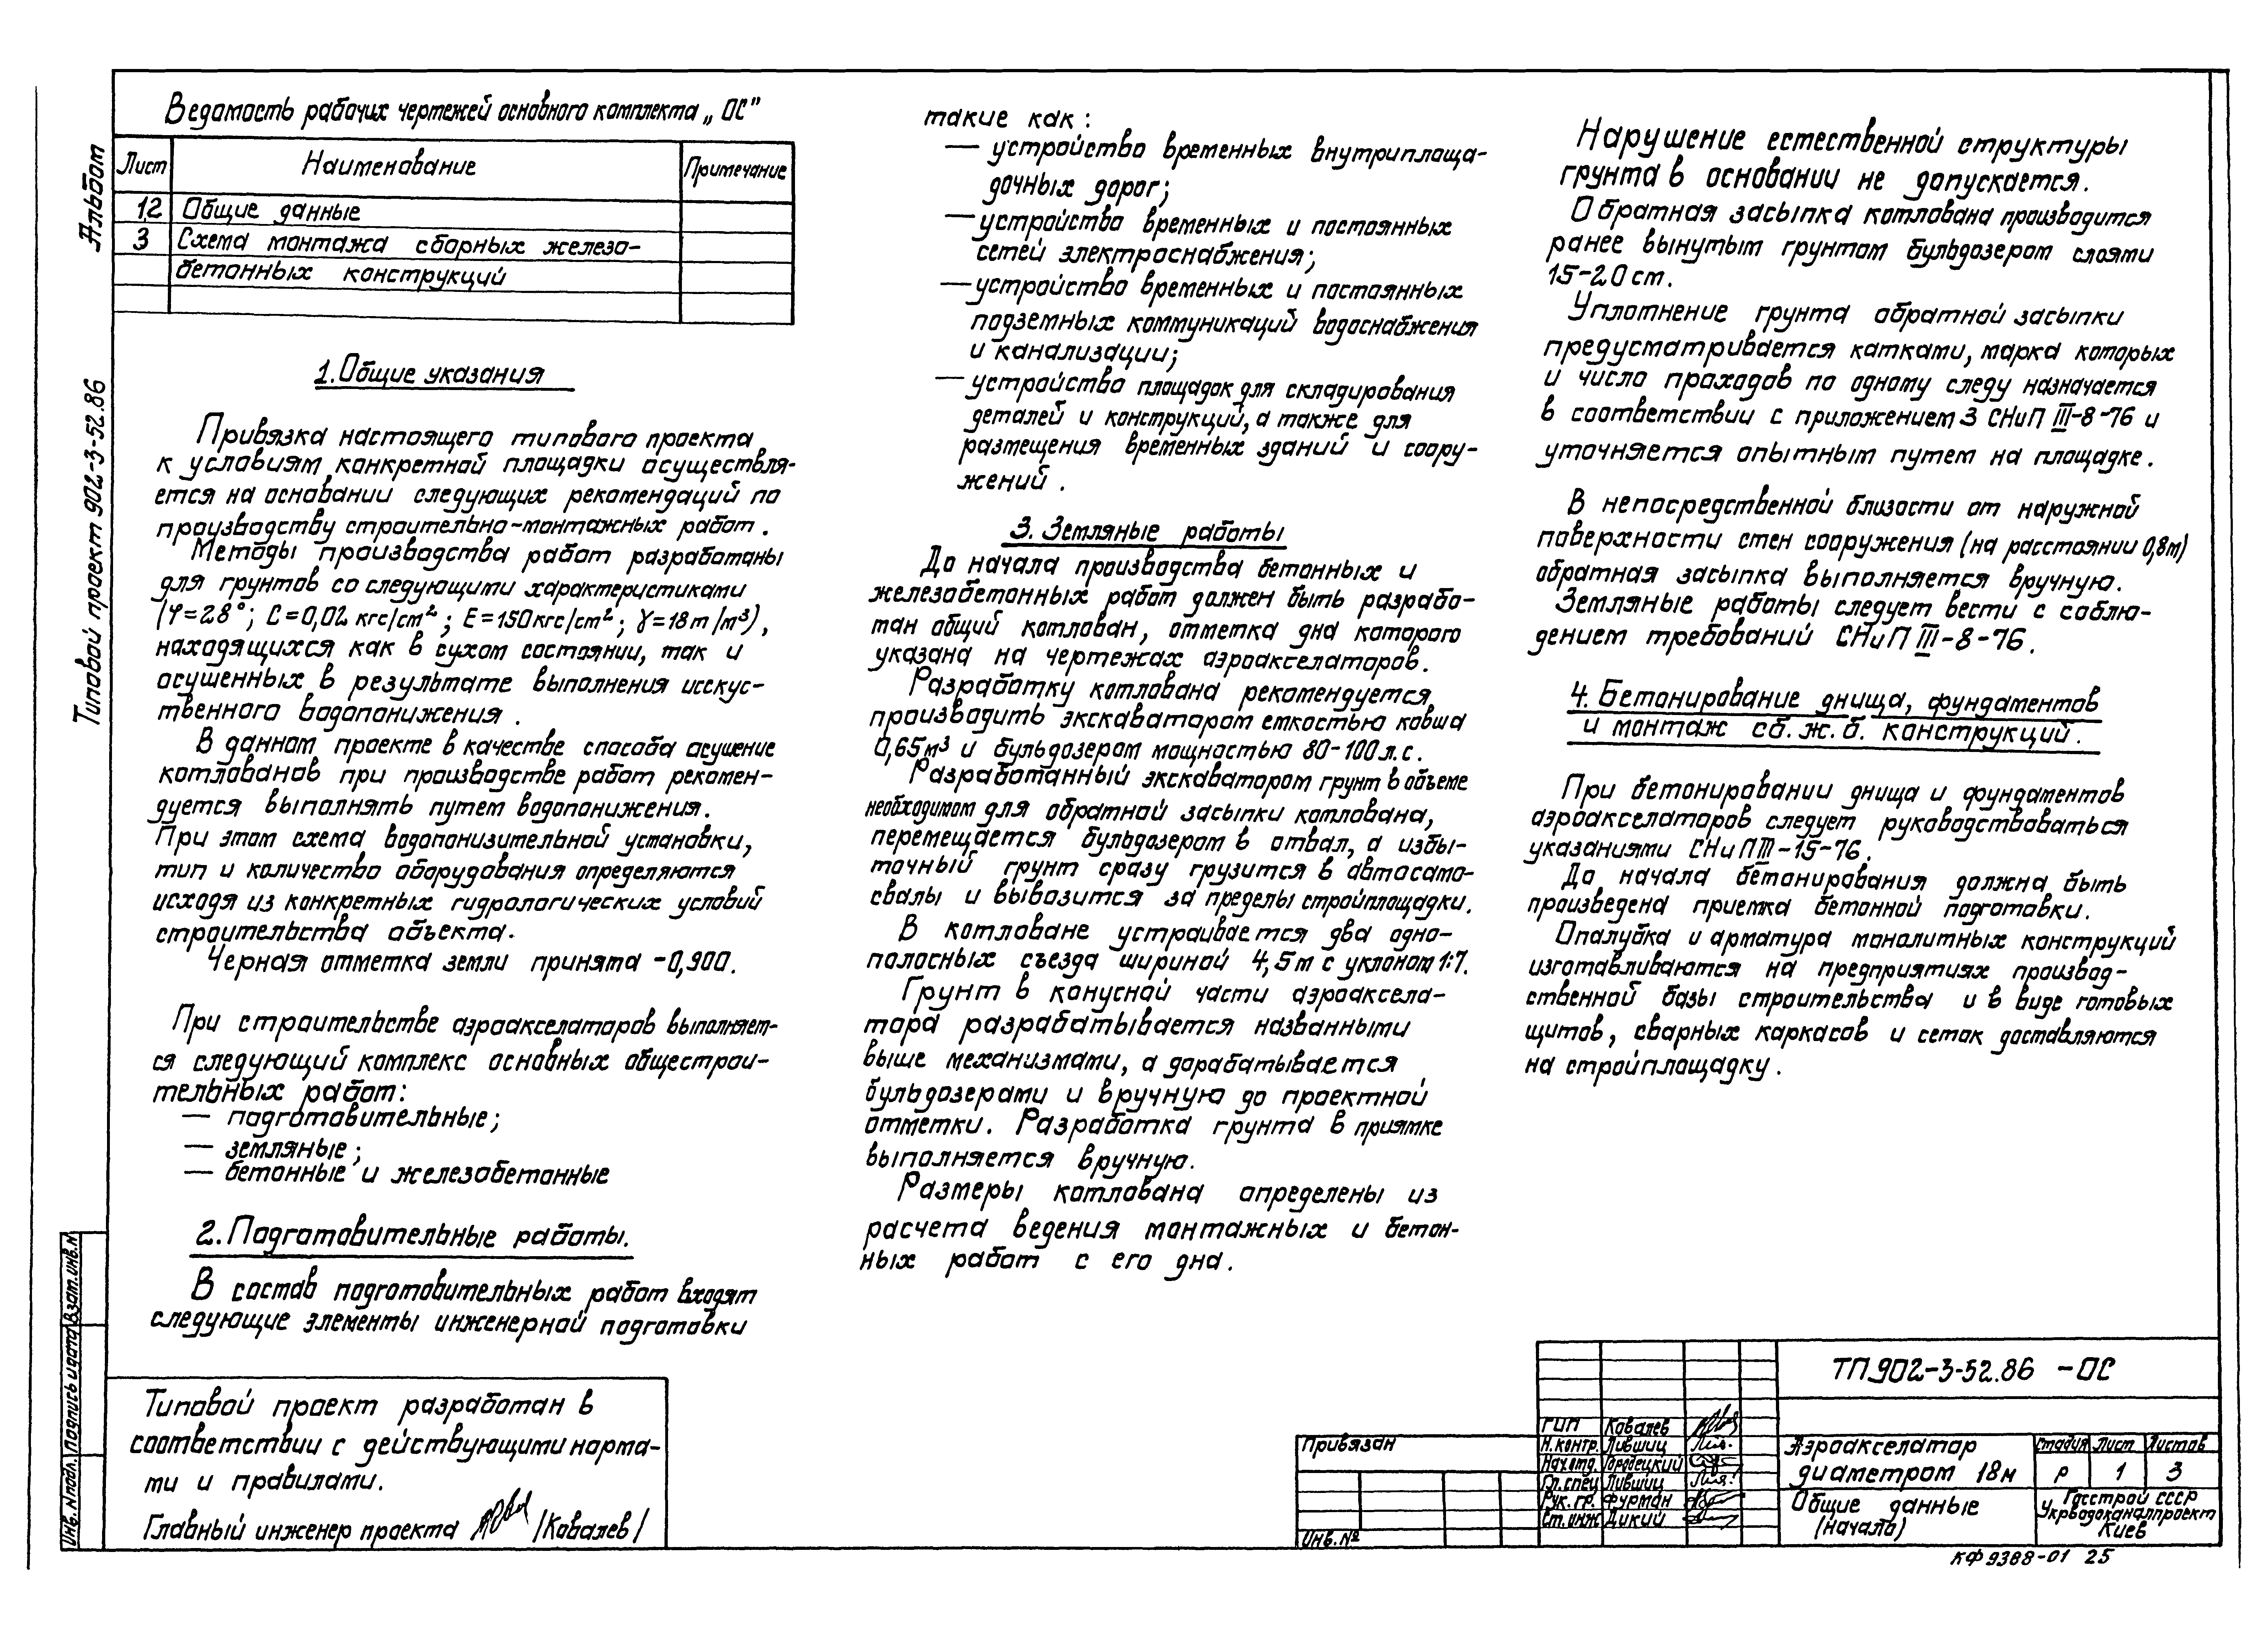 Альбом
Типовой проект 902-3-52.86
Ведомость рабочих чертежей основного комплекта „ОС"
Лист Наименование Примечание
1,2 Общие данные
3 Схема монтажа сборных железо-
бетонных конструкций
1. Общие указания
Привязка настоящего типового проекта
к условиям конкретной площадки осуществля-
ется на основании следующих рекомендаций по
производству строительно-монтажных работ.
Методы производства работ разработаны
для грунтов со следующими характеристиками
(φ=28°; С=0,02 кгс/см²; Е=150кгс/см²; γ=18т/м³),
находящихся как в сухом состоянии, так и
осушенных в результате выполнения исскус-
твенного водопонижения.
В данном проекте в качестве способа осушение
котлованов при производстве работ рекомен-
дуется выполнять путем водопонижения.
При этом схема водопонизительной установки,
тип и количество оборудования определяются
исходя из конкретных гидрологических условий
строительства объекта.
Черная отметка земли принята -0,900.
При строительстве аэроакселаторов выполняет-
ся следующий комплекс основных общестрои-
тельных работ:
— подготовительные;
— земляные;
— бетонные и железобетонные
2. Подготовительные работы.
В состав подготовительных работ входят
следующие элементы инженерной подготовки
Типовой проект разработан в
соответствии с действующими норма-
ми и правилами.
Главный инженер проекта /Ковалев/
такие как:
— устройство временных внутриплоща-
дочных дорог;
— устройство временных и постоянных
сетей электроснабжения;
— устройство временных и постоянных
подземных коммуникаций водоснабжения
и канализации;
— устройство площадок для складирования
деталей и конструкций, а также для
размещения временных зданий и соору-
жений.
3. Земляные работы
До начала производства бетонных и
железобетонных работ должен быть разрабо-
тан общий котлован, отметка дна которого
указана на чертежах аэроакселаторов.
Разработку котлована рекомендуется
производить экскаватором емкостью ковша
0,65м³ и бульдозером мощностью 80-100л.с.
Разработанный экскаватором грунт в объеме
необходимом для обратной засыпки котлована,
перемещается бульдозером в отвал, а избы-
точный грунт сразу грузится в автосамо-
свалы и вывозится за пределы стройплощадки.
В котловане устраивается два одно-
полосных съезда шириной 4,5м с уклоном 1:7.
Грунт в конусной части аэроаксела-
тора разрабатывается названными
выше механизмами, а дорабатывается
бульдозерами и вручную до проектной
отметки. Разработка грунта в приямке
выполняется вручную.
Размеры котлована определены из
расчета ведения монтажных и бетон-
ных работ с его дна.
Нарушение естественной структуры
грунта в основании не допускается.
Обратная засыпка котлована производится
ранее вынутым грунтом бульдозером слоями
15-20см.
Уплотнение грунта обратной засыпки
предусматривается катками, марка которых
и число проходов по одному следу назначается
в соответствии с приложением 3 СНиП III-8-76 и
уточняется опытным путем на площадке.
В непосредственной близости от наружной
поверхности стен сооружения (на расстоянии 0,8м)
обратная засыпка выполняется вручную.
Земляные работы следует вести с соблю-
дением требований СНиП III-8-76.
4. Бетонирование днища, фундаментов
и монтаж сб.ж.б. конструкций.
При бетонировании днища и фундаментов
аэроакселаторов следует руководствоваться
указаниями СНиП III-15-76.
До начала бетонирования должна быть
произведена приемка бетонной подготовки.
Опалубка и арматура монолитных конструкций
изготавливаются на предприятиях производ-
ственной базы строительства и в виде готовых
щитов, сварных каркасов и сеток доставляются
на стройплощадку.
Взам.инв.N
Подпись и дата
Инв.Nподл.
Привязан
Инв.№
ГИП Ковалев
Н.контр. Лившиц
Нач.отд. Городецкий
Гл.спец Лившиц
Рук.гр. Фурман
Ст.инж Дикий
ТП.902-3-52.86 -ОС
Аэроакселатор
диаметром 18м
Стадия Лист Листов
Р 1 3
Общие данные
(начало)
Госстрой СССР
Укрводоканалпроект
Киев
КФ 9388-01 25